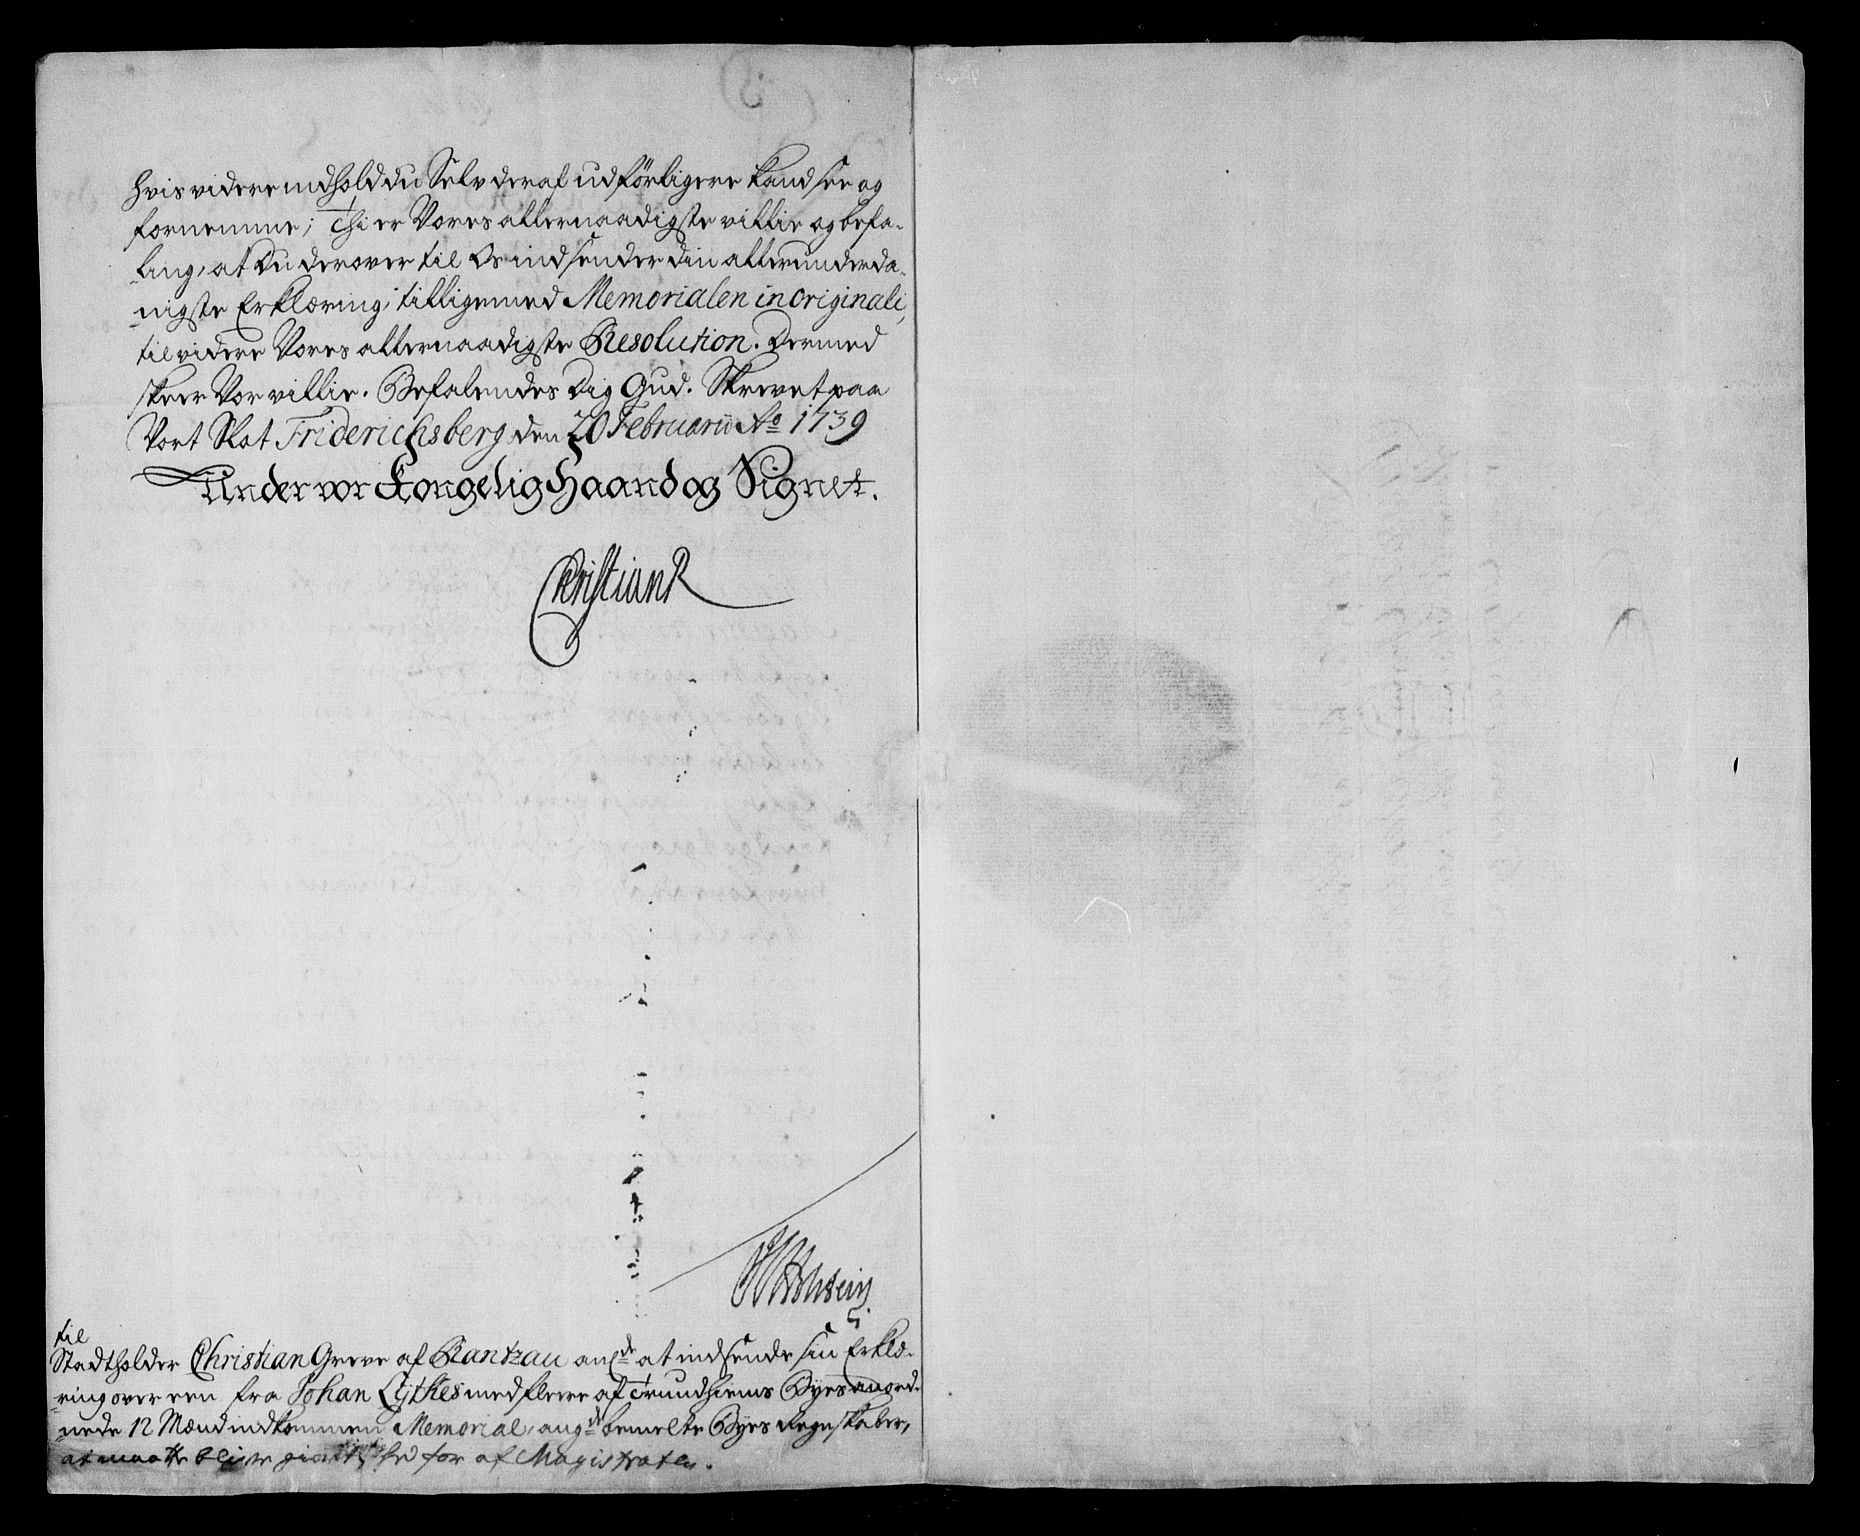 hvis videre indhold du Selv deraf udförligere kand see og
fornemme; Thi er Vores allernaadigste villie og befa-
ling, at Du derover til Os indsender din allerunderda-
nigste Erklæring, tilligemed Memorialen in originali,
til videre Vores allernaadigste Resolution. Dermed
skeer Vor villie. Befalendes Dig Gud. Skrevet paa
Vort Slot Friderichsberg den 20 Februarii Ao 1739
Under vor Kongelig Haand og Signet.
Christian R
Holstein
til
Stadtholder Christian Greve af Rantzau angde at indsende sin Erklæ-
ring over een fra Johan Lÿthes med fleere af Trundhiems Byes anord-
nede 12 Mænd indkommen Memorial, angde bemelte Byes Regnskaber,
at maatte blive giort for af Magistraten.